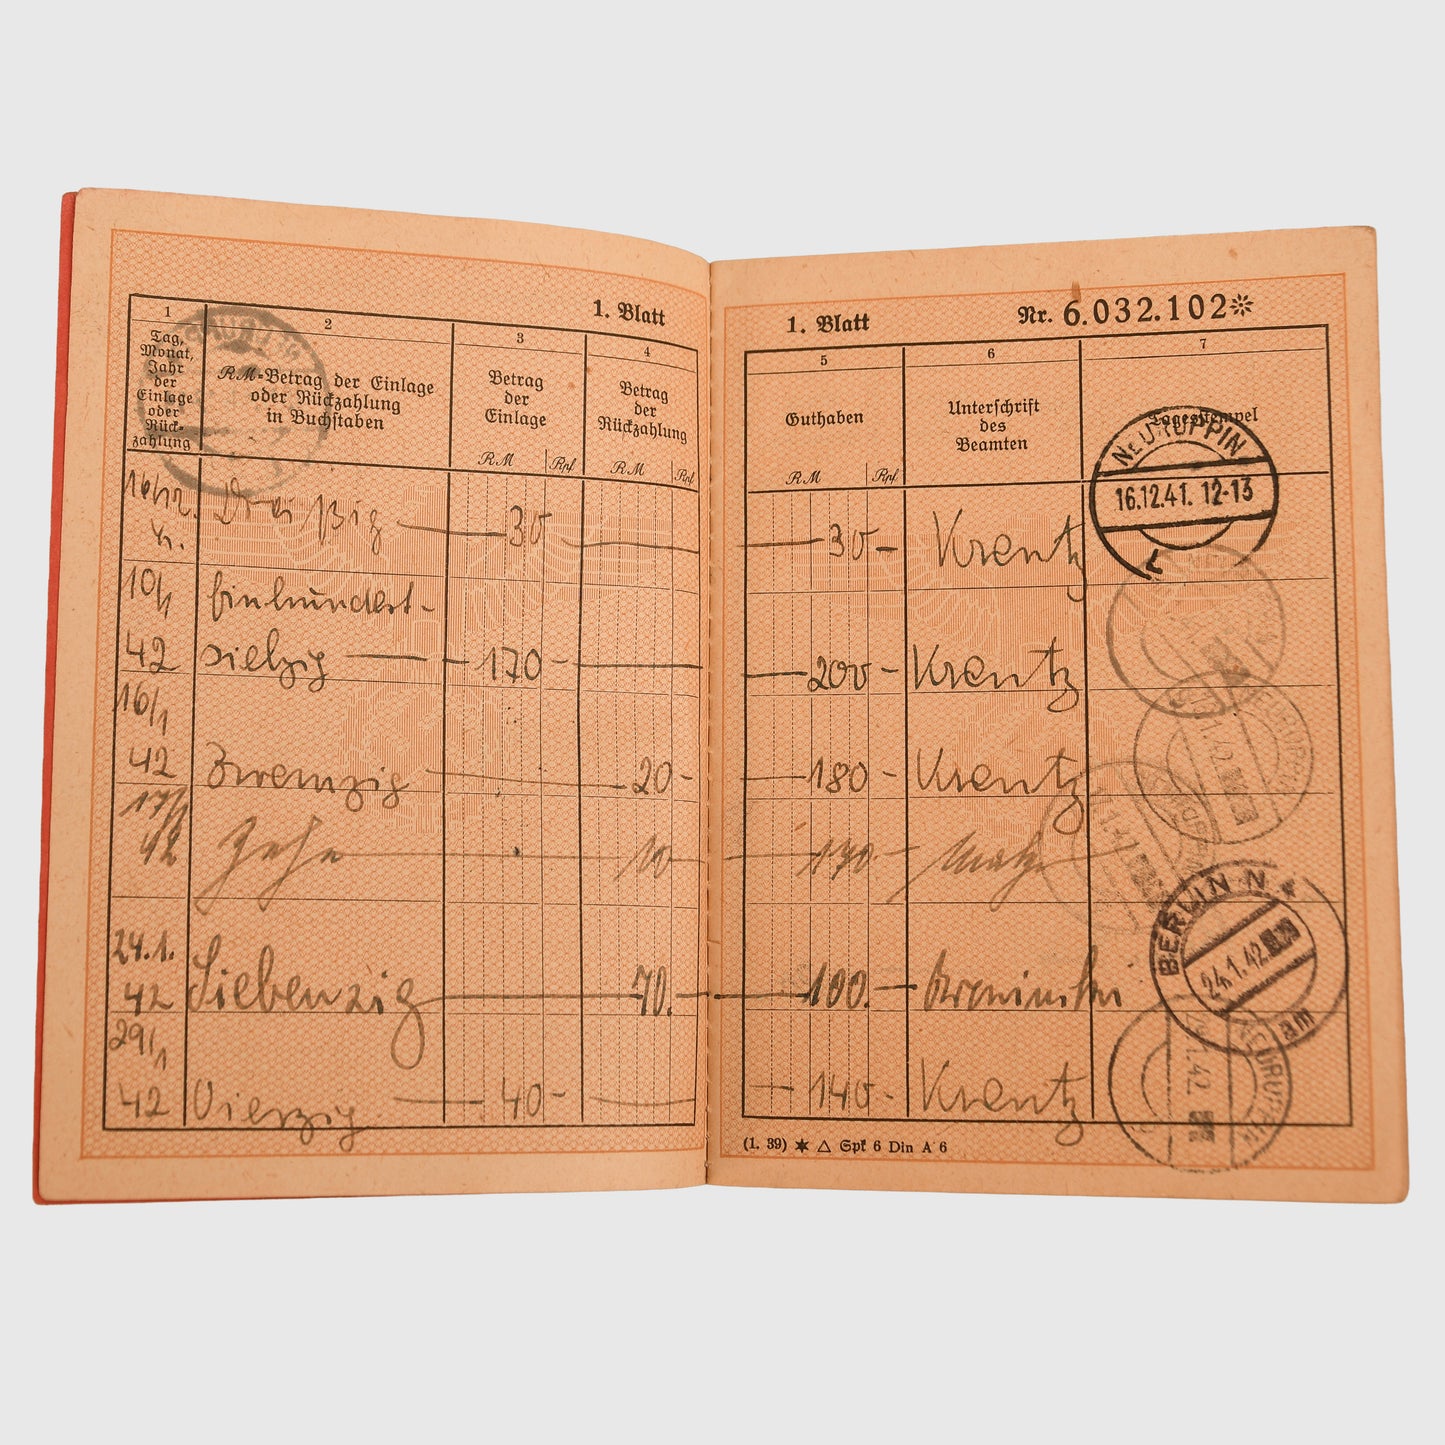 1. Blatt
1
2
3
4
Tag,
Monat,
Jahr
der
Einlage
oder
Rück-
zahlung
RM-Betrag der Einlage
oder Rückzahlung
in Buchstaben
Betrag
der
Einlage
Betrag
der
Rückzahlung
RM Rpf
RM Rpf
16/12. Dreißig — 30
10/1 Einhundert-
42 siebzig — 170 -
16/1
42 Zwanzig — 20 -
17/1
42 Zehn — 10
24.1.
42 Siebenzig — 70.
29/1
42 Vierzig — 40 -
1. Blatt Nr. 6.032.102*
5
6
7
Guthaben
Unterschrift
des
Beamten
Tagesstempel
RM Rpf
— 30 - Krentz
NEURUPPIN
16.12.41. 12-13
— 200 - Krentz
— 180 - Krentz
— 170 -
— 100. —
BERLIN N 4
24.1.42
am
— 140 - Krentz
NEURUPPIN
(1. 39) ✶ △ Spk 6 Din A 6